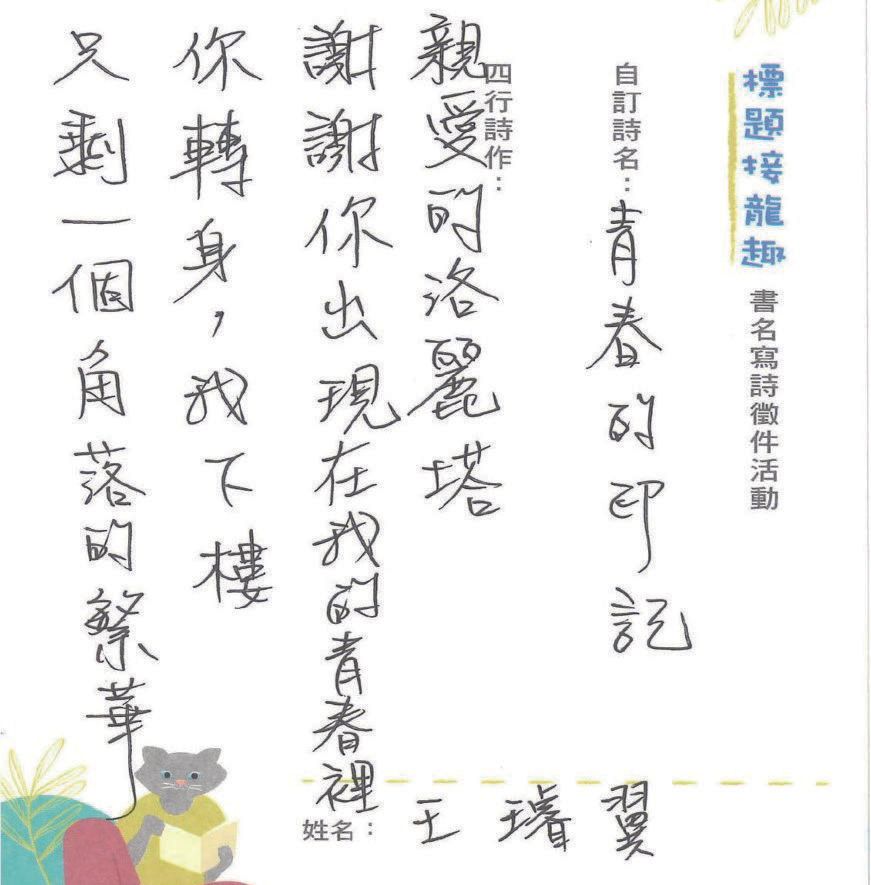 標題接龍趣 書名寫詩徵件活動
自訂詩名：青春的印記
四行詩作：
親愛的洛麗塔
謝謝你出現在我的青春裡
你轉身，我下樓
只剩一個角落的繁華
姓名：王璿翼